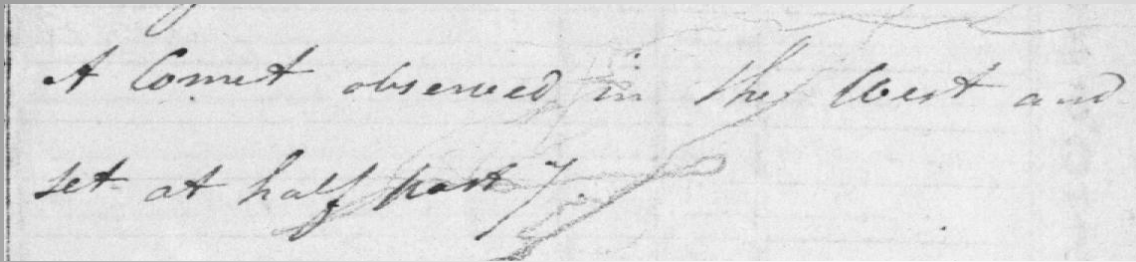 A Comet observed in the West and
set at half past 7.